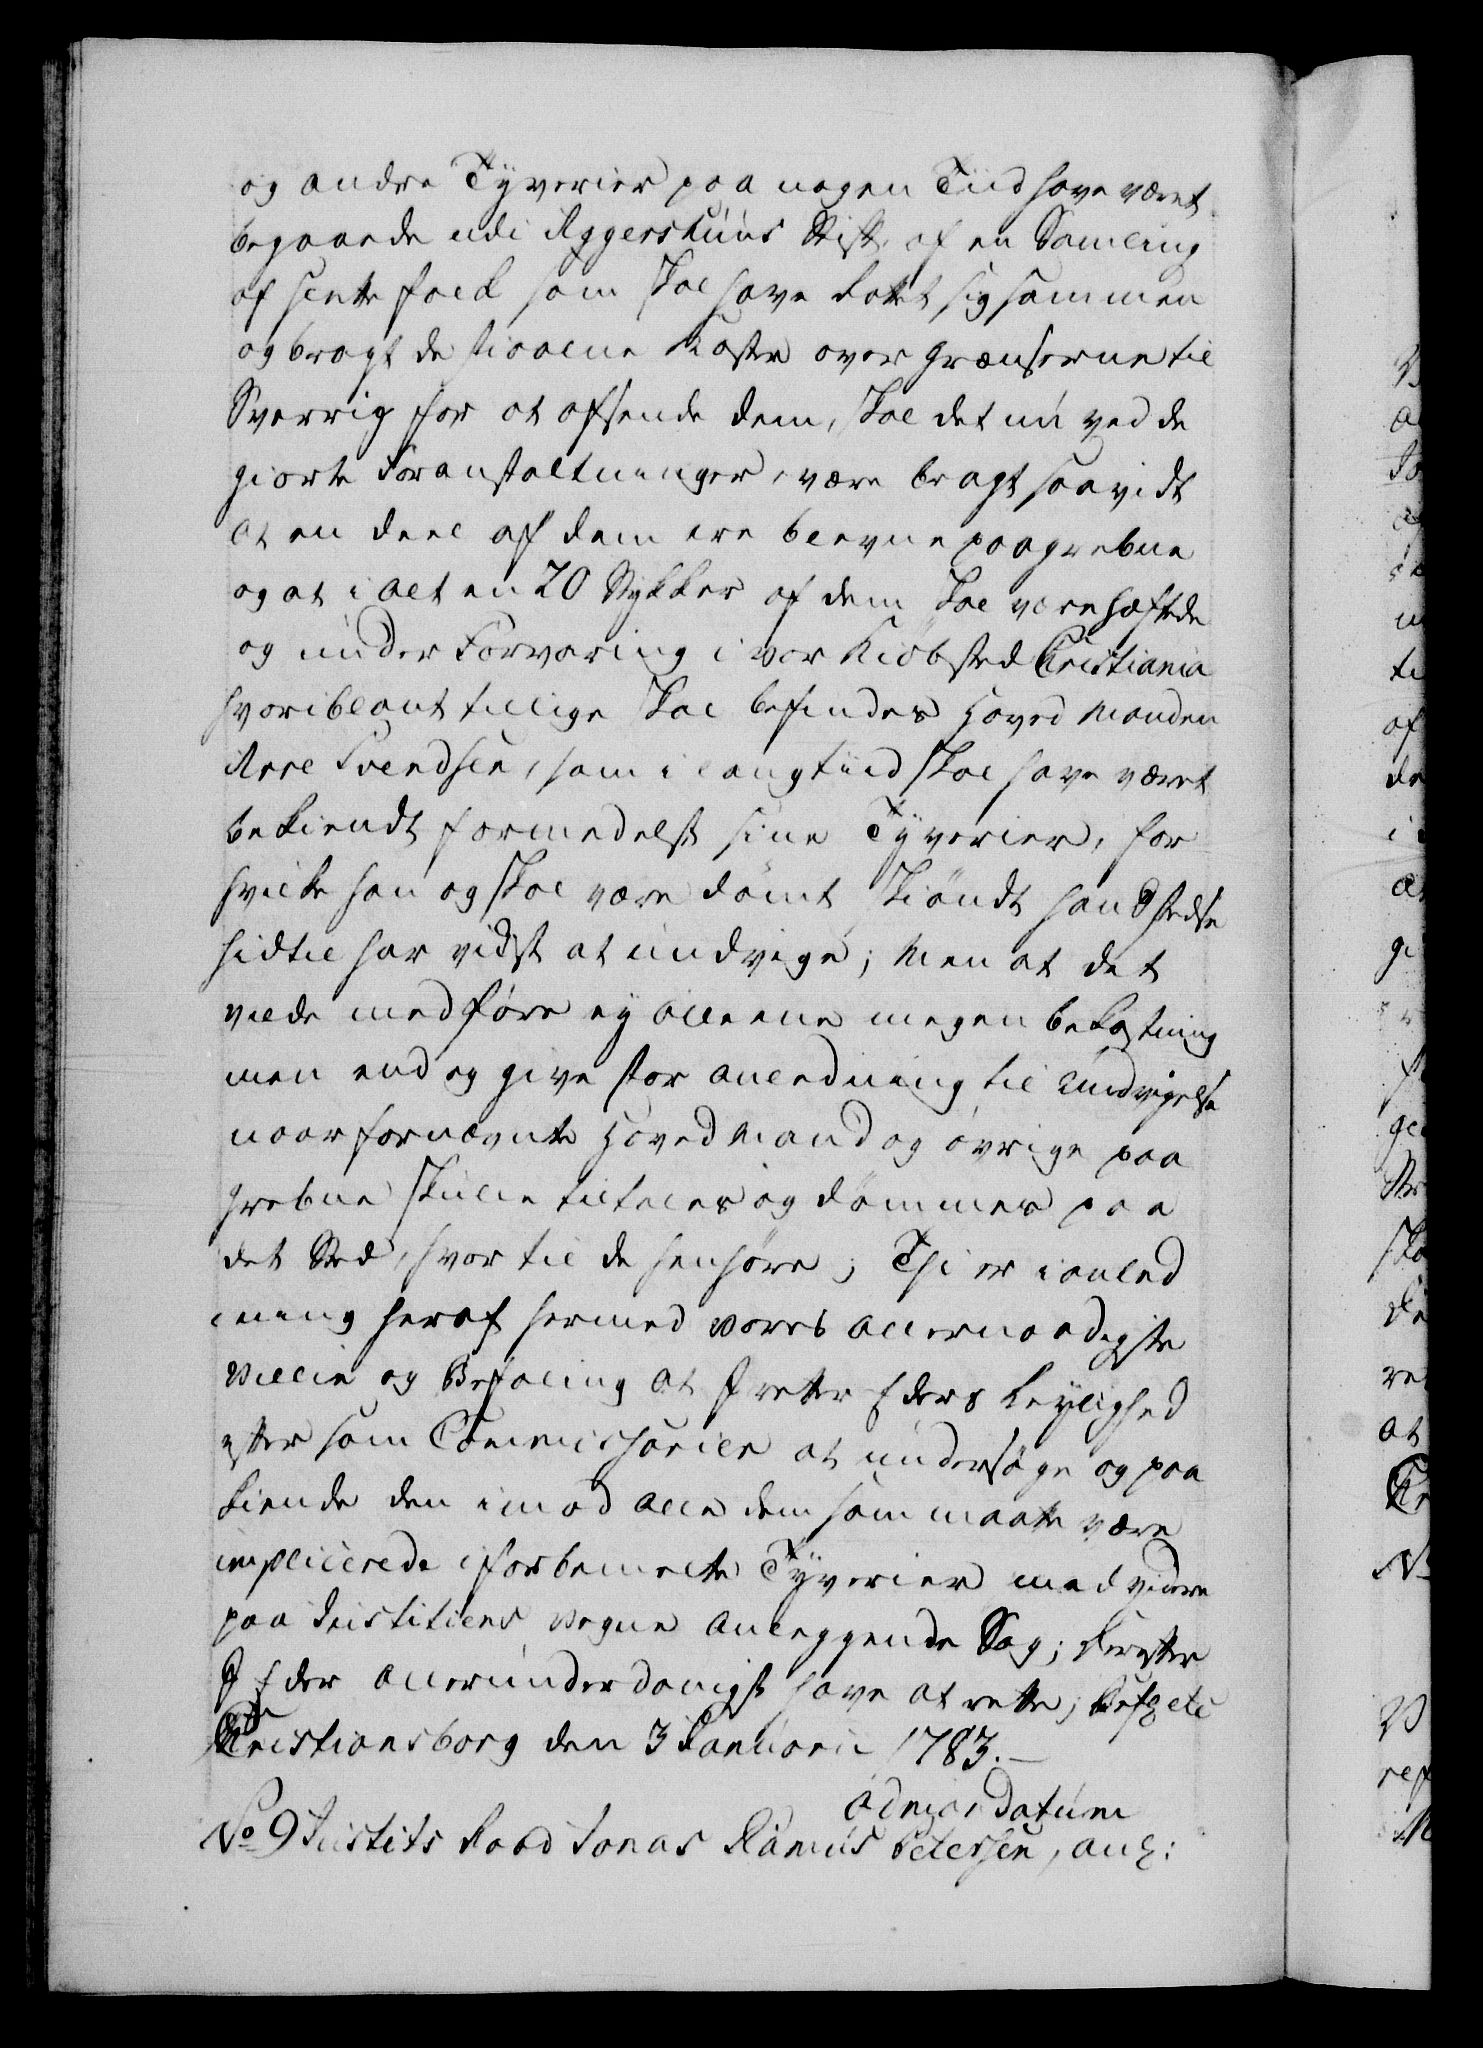 og andre Tÿverier paa nogen Tiid have været
begaaede udi Aggershuus Stift, af en Samling
af slette folck som skal have Rottet sig sammen
og bragt de stiaalne Koster over Grænserne til
Sverrig for at afsende dem, skal det nu ved de
giorte Foranstaltninger, være bragt saavidt
at en deel af dem ere blevne paagrebne
og at i alt en 20 Stykker af dem skal være hæftede
og under Forvaring i vor Kiöbsted Christiania
hvoriblant tillige skal befindes Hoved Manden
Arre Svendsen, som i lang tiid skal have været
bekiendt formedelst sine Tÿverier, for
hvilke han og skal være dömt, skiöndt hand stedse
hidtil har vidst at undvige; Men at det
vilde medföre ey alleene megen bekostning
men end og give stor anledning til Undvigelse
naar fornævnte Hoved Mand og övrige paa
grebne skulle tiltales og dömmes paa
det Sted, hvor til de henhöre; Thi er i anled
ning heraf hermed vores allernaadigste
Villie og Befaling at I retter Eders leylighed
efter som Commissarier at undersöge og paa
kiende den imod alle dem som maatte være
implicerede i forbemelte Tÿverier med videre
paa Justitiens vegne anleggende Sag; Derefter
I Eder allerunderdanigst have at rette; Befahl etc
Christiansborg den 3 Januarii 1783.
ad mandatum
No 9 Justits Raad Jonas Ramus Petersen, anl: